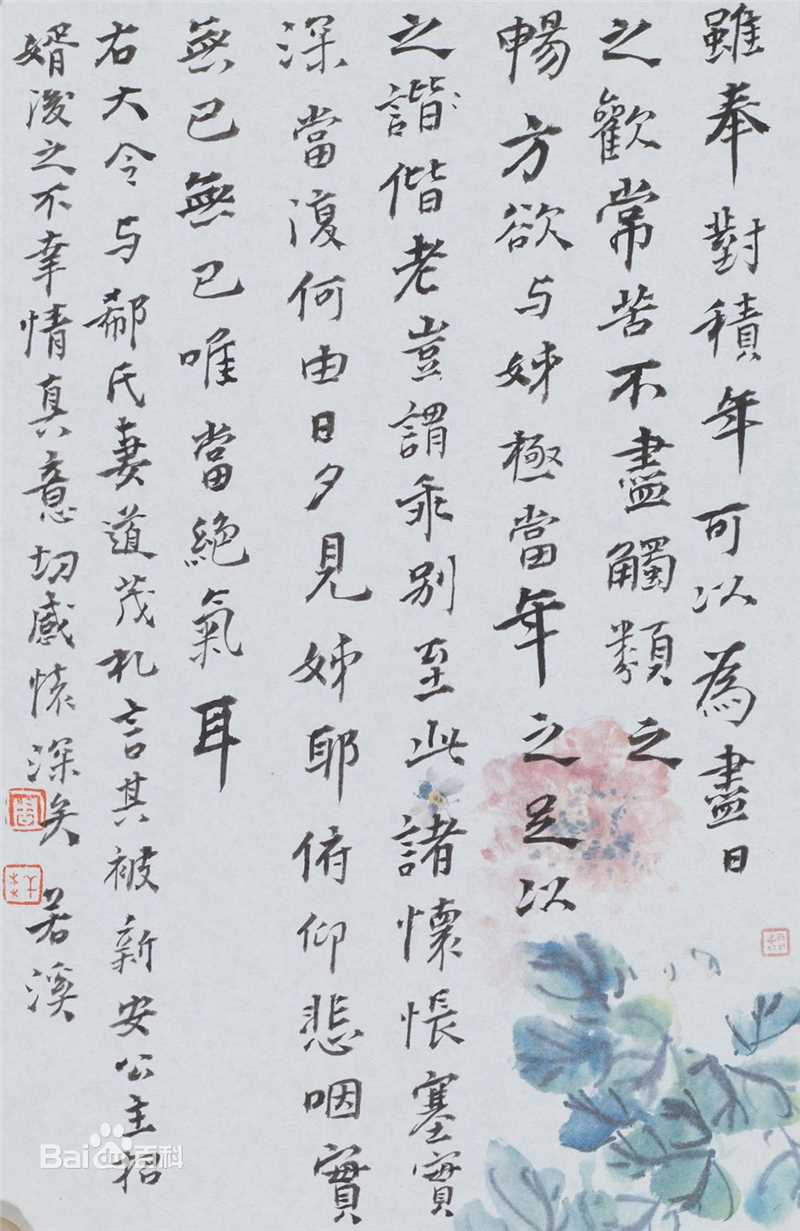 雖奉對積年可以為盡日
之歡常苦不盡觸類之
暢方欲与姊極當年之足以
之諧偕老豈謂乖別至此諸懷悵塞實
深當復何由日夕見姊耶俯仰悲咽實
無已無已唯當絕氣耳
右大令与郗氏妻道茂札言其被新安公主招
婿後之不幸情真意切感懷深矣 若溪
Baidu百科